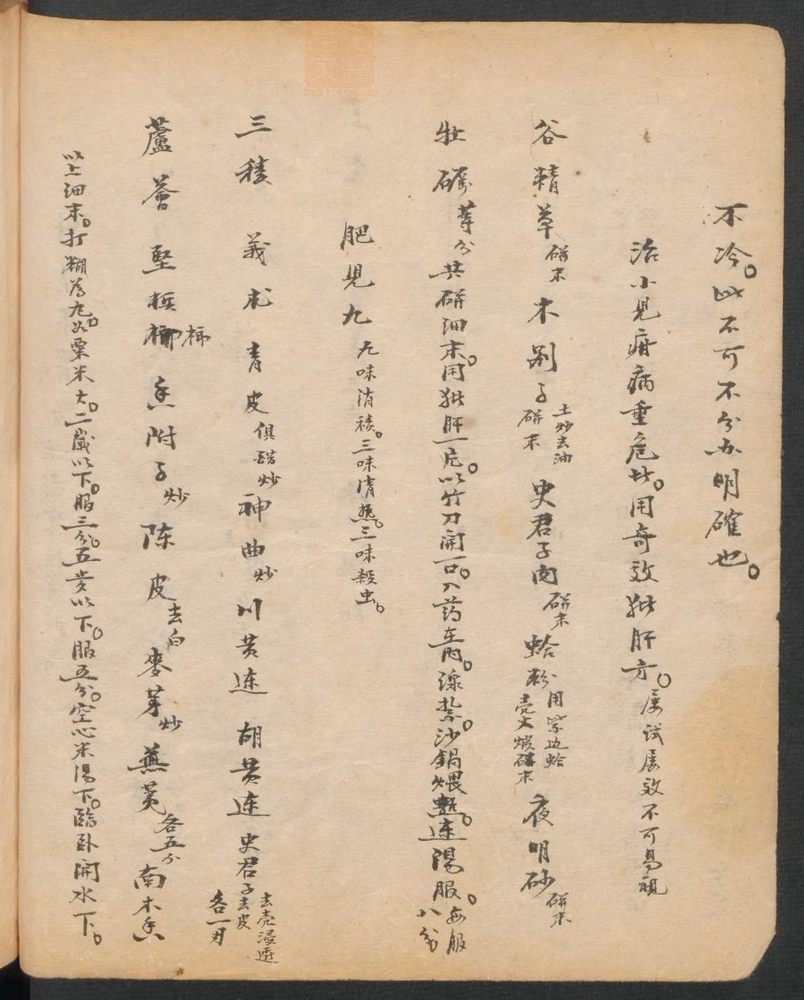 不冷。此不可不分办明確也。
治小児疳病重危此。用奇效猪肝方。屡試屡效不可易視
谷精草研末 木别子土炒去油研末 史君子肉研末 蛤粉用紫边蛤壳火煅研末 夜明砂研末
牡礪等分共研細末。用猪肝一片。以竹刀開口。入药在內。線紮。沙鍋煨熟。連湯服。每服八分
肥児九 九味消積。三味清熱。三味殺虫。
三稜 莪朮 青皮俱醋炒 神曲炒 川黄连 胡黄连 史君子去壳浸透去皮各一刄
蘆薈 堅梹榔 香附子炒 陈皮去白 麥芽炒 蕪荑各五分 南木香
以上細末。打糊為九。如粟米大。二歲以下。服三分。五岁以下。服五分。空心米湯下。臨卧開水下。